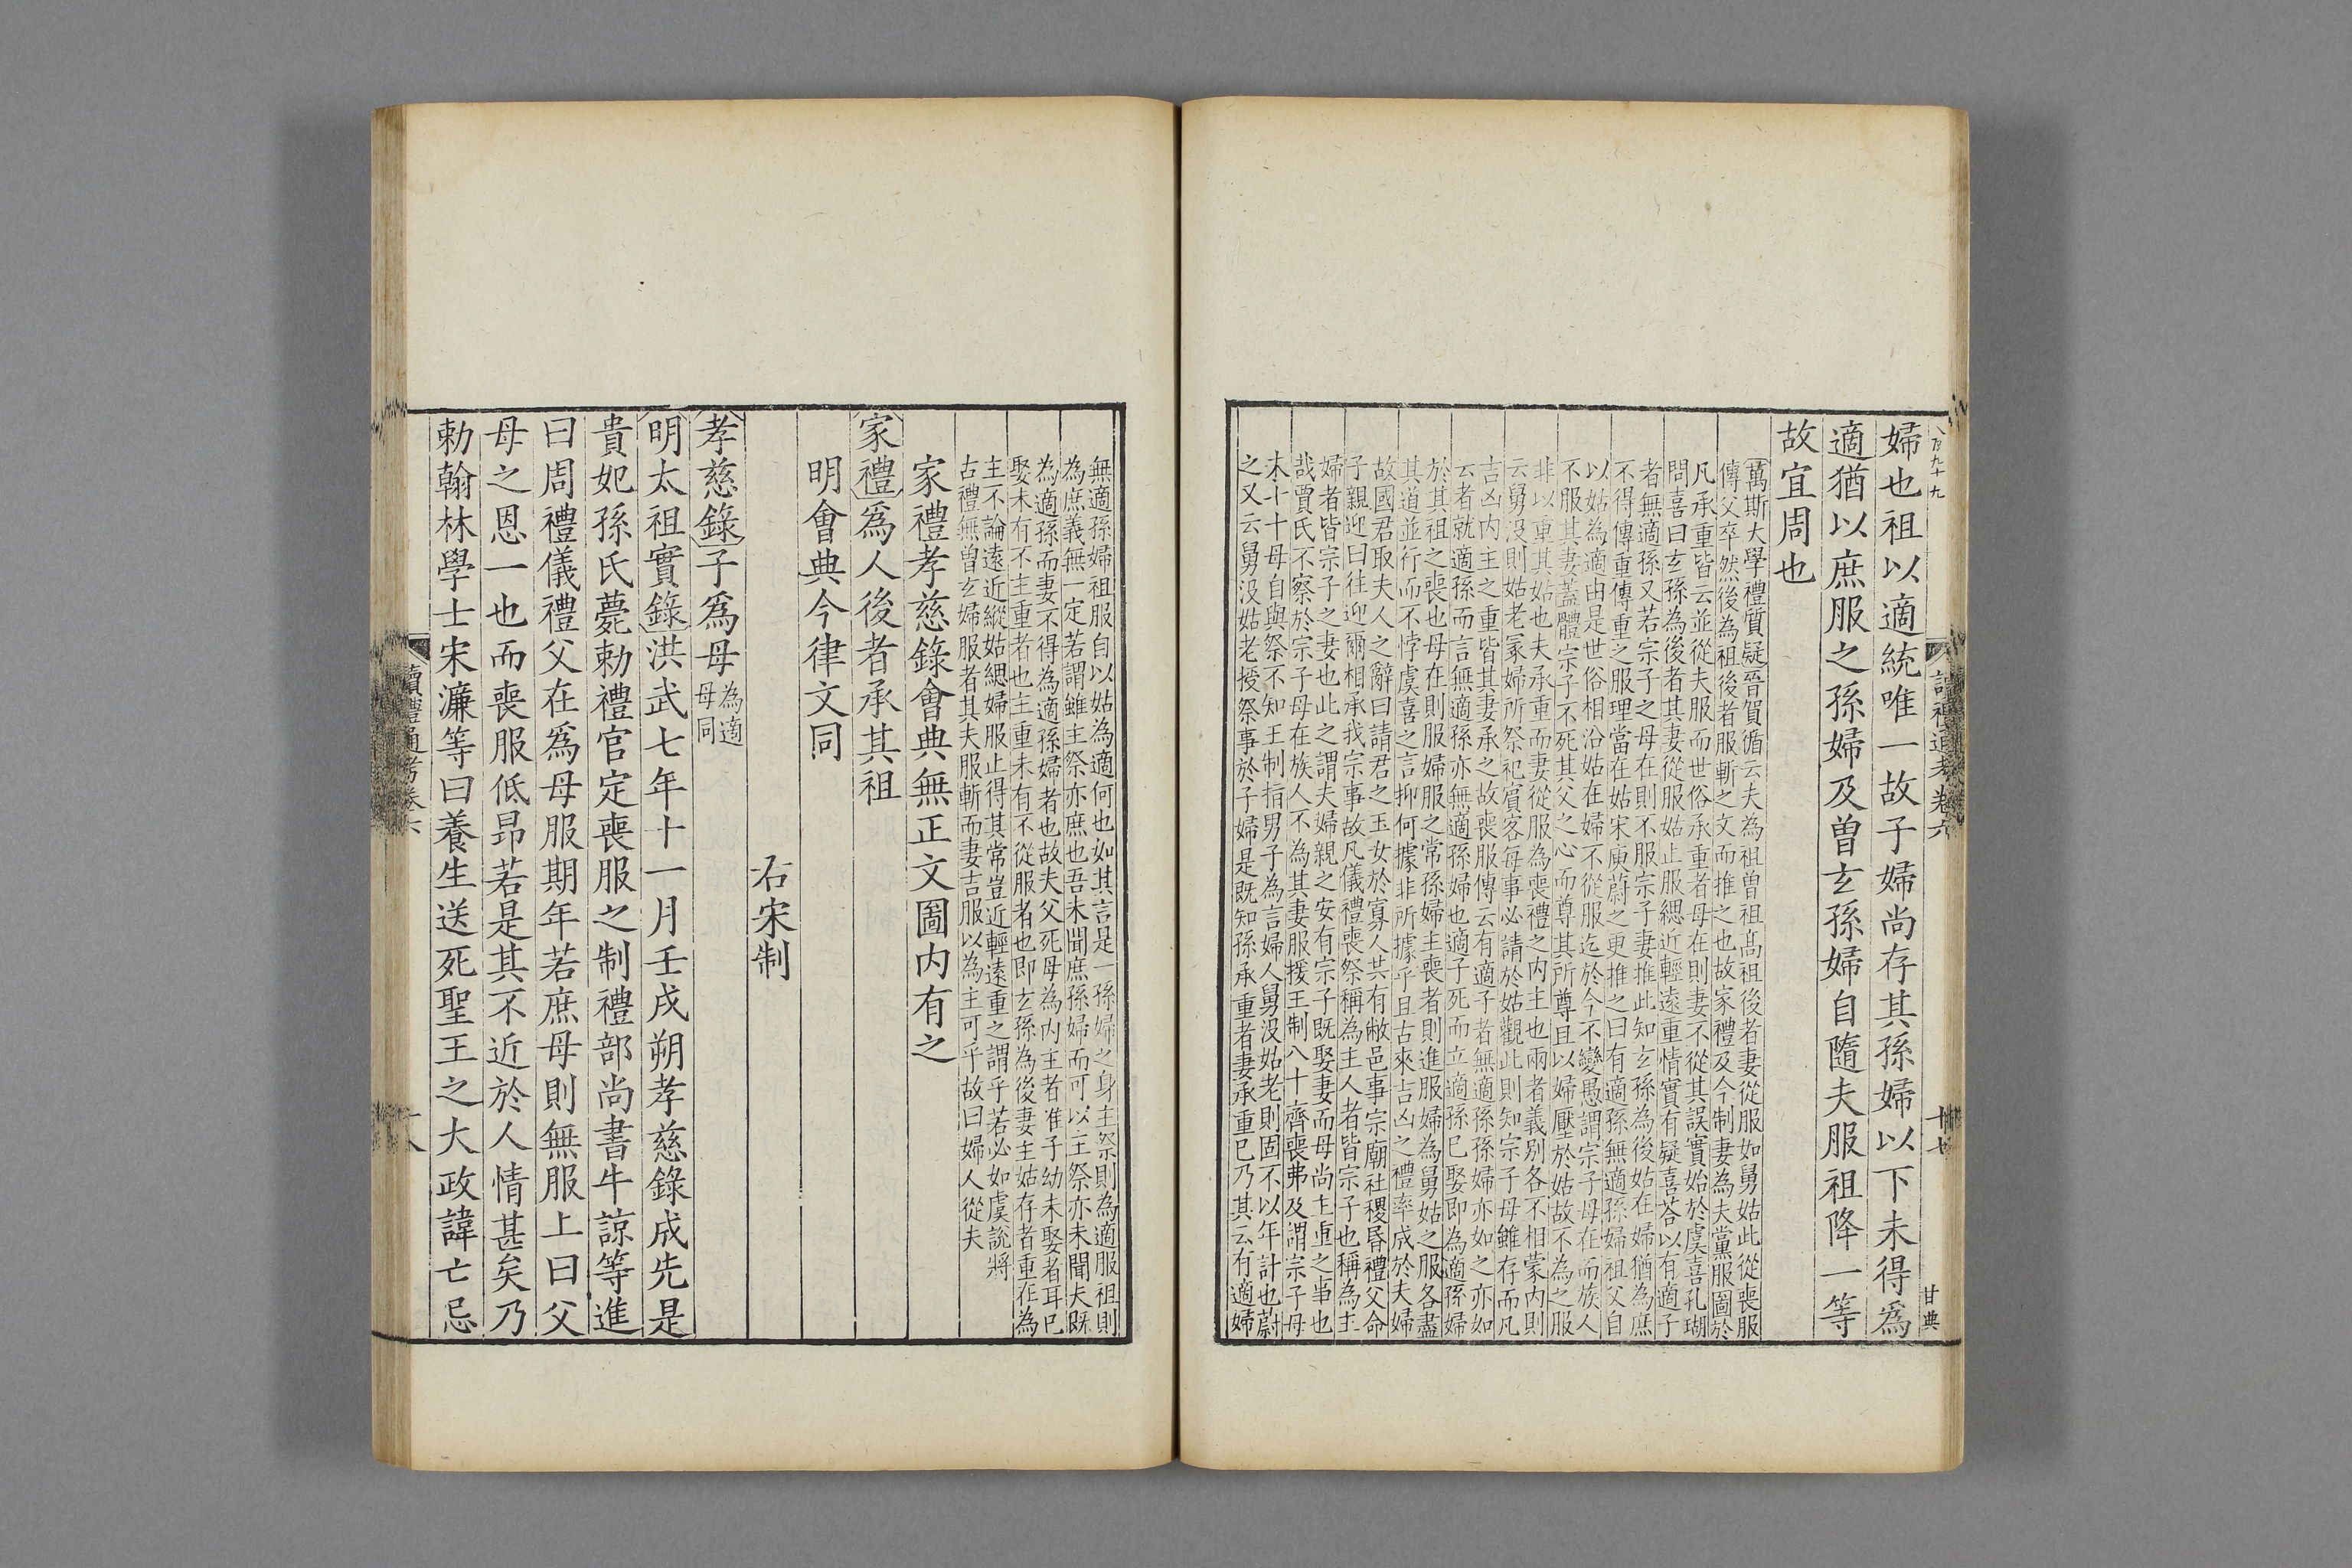 八百九十九
讀禮通考卷六
十七
甘典
婦也祖以適統唯一故子婦尚存其孫婦以下未得爲
適猶以庶服之孫婦及曾玄孫婦自隨夫服祖降一等
故宜周也
萬斯大學禮質疑晉賀循云夫為祖曾祖髙祖後者妻從服如舅姑此從喪服
傳父卒然後為祖後者服斬之文而推之也故家禮及今制妻為夫黨服圖於
凡承重皆云並從夫服而世俗承重者母在則妻不從其誤實始於虞喜孔瑚
問喜曰玄孫為後者其妻從服姑止服緦近輕遠重情實有疑喜荅以有適子
者無適孫又若宗子之母在則不服宗子妻推此知玄孫為後姑在婦猶為庶
不得傳重傳重之服理當在姑宋庾蔚之更推之曰有適孫無適孫婦祖父自
以姑為適由是世俗相沿姑在婦不從服迄於今不變愚謂宗子母在而族人
不服其妻蓋體宗子不死其父之心而尊其所尊且以婦壓於姑故不為之服
非以重其姑也夫承重而妻從服為喪禮之内主也兩者義别各不相蒙内則
云舅没則姑老冡婦所祭祀賓客每事必請於姑觀此則知宗子母雖存而凡
吉凶内主之重皆其妻承之故喪服傳云有適子者無適孫孫婦亦如之亦如
云者就適孫而言無適孫亦無適孫婦也適子死而立適孫巳娶即為適孫婦
於其祖之喪也母在則服婦服之常孫婦主喪者則進服婦為舅姑之服各盡
其道並行而不悖虞喜之言抑何據非所據乎且古來吉凶之禮率成於夫婦
故國君取夫人之辭曰請君之玉女於寡人共有敝邑事宗廟社稷昏禮父命
子親迎曰往迎爾相承我宗事故凡儀禮喪祭稱為主人者皆宗子也稱為主
婦者皆宗子之妻也此之謂夫婦親之安有宗子既娶妻而母尚主重之事也
哉賈氏不察於宗子母在族人不為其妻服援王制八十齊喪弗及謂宗子母
未七十母自與祭不知王制指男子為言婦人舅没姑老則固不以年計也蔚
之又云舅没姑老授祭事於子婦是既知孫承重者妻承重巳乃其云有適婦
無適孫婦祖服自以姑為適何也如其言是一孫婦之身主祭則為適服祖則
為庶義無一定若謂雖主祭亦庶也吾未聞庶孫婦而可以主祭亦未聞夫既
為適孫而妻不得為適孫婦者也故夫父死母為内主者准子幼未娶者耳巳
娶未有不主重者也主重未有不從服者也即玄孫為後妻主姑存者重在為
主不論遠近縱姑緦婦服止得其常豈近輕遠重之謂乎若必如虞説將
古禮無曾玄婦服者其夫服斬而妻吉服以為主可乎故曰婦人從夫
家禮孝慈錄會典無正文圖内有之
家禮爲人後者承其祖
明會典今律文同
右宋制
孝慈錄子爲母為適母同
明太祖實錄洪武七年十一月壬戌朔孝慈錄成先是
貴妃孫氏薨勅禮官定喪服之制禮部尚書牛諒等進
曰周禮儀禮父在爲母服期年若庶母則無服上曰父
母之恩一也而喪服低昂若是其不近於人情甚矣乃
勅翰林學士宋濂等曰養生送死聖王之大政諱亡忌
讀禮通考卷六
十八